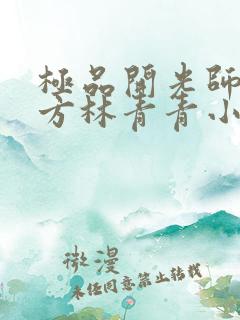 極品開光師
方林青青小
微漫
未经同意禁止转载